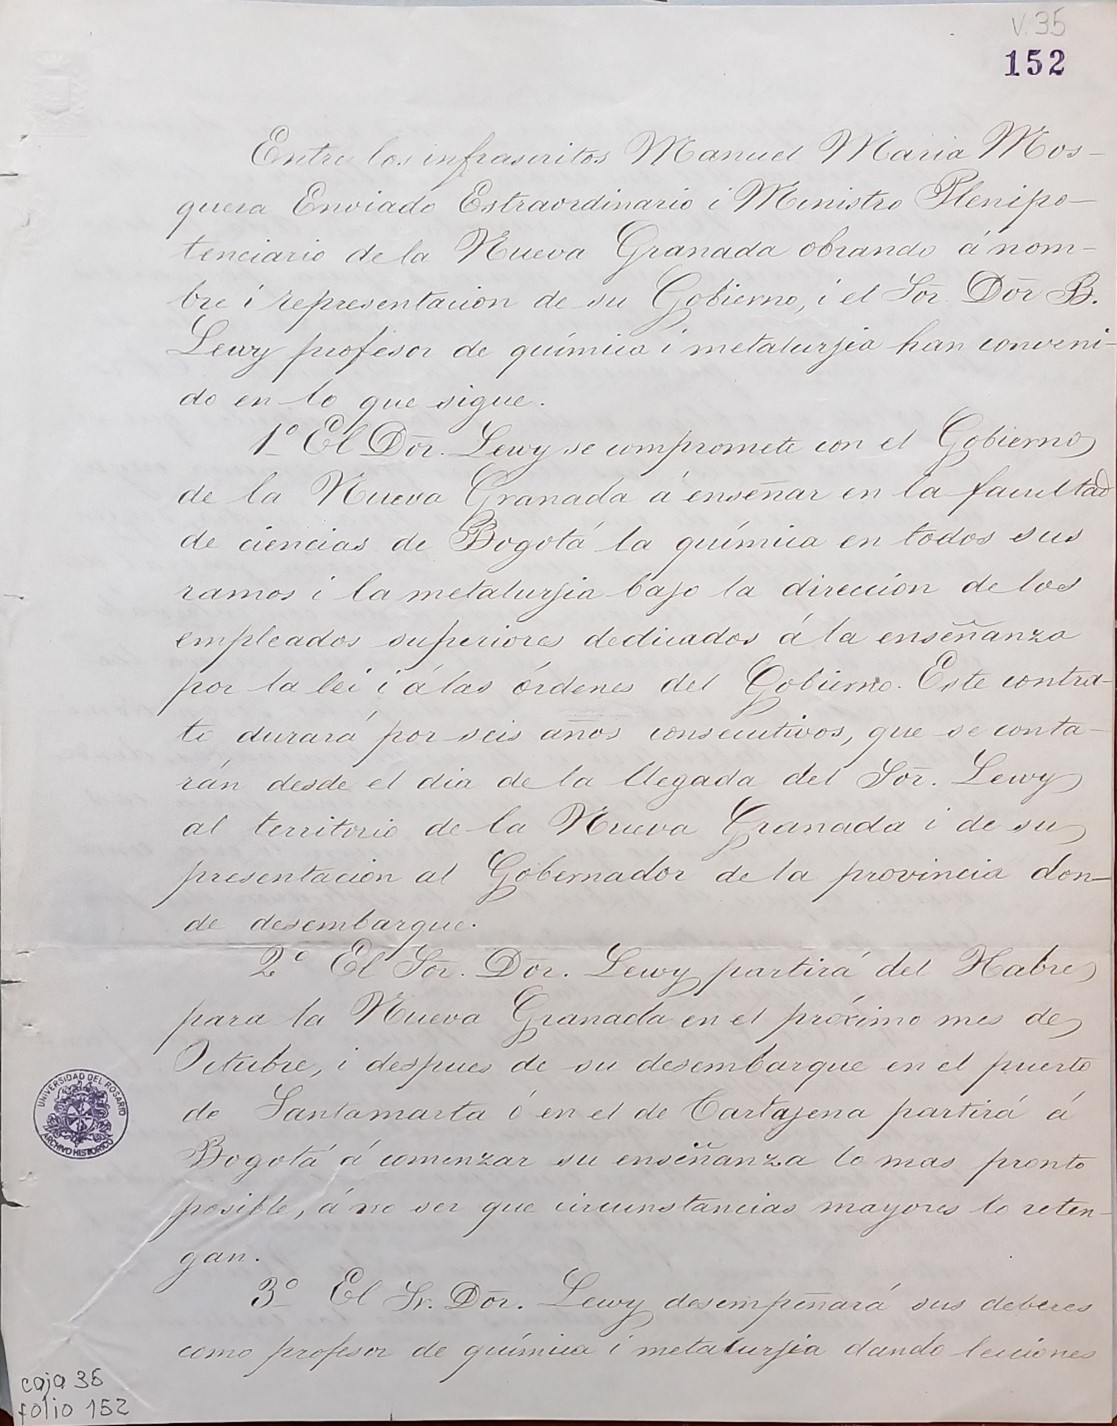 V. 35
152
Entre los infrascritos Manuel Maria Mos-
quera Enviado Estraordinario i Ministro Plenipo-
tenciario de la Nueva Granada obrando á nom-
bre i representacion de su Gobierno, i el Sor Dor B.
Lewy profesor de química i metalurjia han conveni-
do en lo que sigue.
1º El Dor. Lewy se compromete con el Gobierno
de la Nueva Granada á enseñar en la facultad
de ciencias de Bogotá la química en todos sus
ramos i la metalurjia bajo la direccion de los
empleados superiores dedicados á la enseñanza
por la lei i á las órdenes del Gobierno. Este contra-
to durará por seis años consecutivos, que se conta-
rán desde el dia de la llegada del Sor. Lewy
al territorio de la Nueva Granada i de su
presentacion al Gobernador de la provincia don-
de desembarque.
2º El Sor. Dor. Lewy partirá del Habre
para la Nueva Granada en el próximo mes de
Octubre, i despues de su desembarque en el puerto
de Santamarta ó en el de Cartajena partirá á
Bogotá á comenzar su enseñanza lo mas pronto
posible, á no ser que circunstancias mayores lo reten-
gan.
3º El Sr. Dor. Lewy desempeñará sus deberes
como profesor de química i metalurjia dando lecciones
UNIVERSIDAD DEL ROSARIO
ARCHIVO HISTORICO
caja 35
folio 152